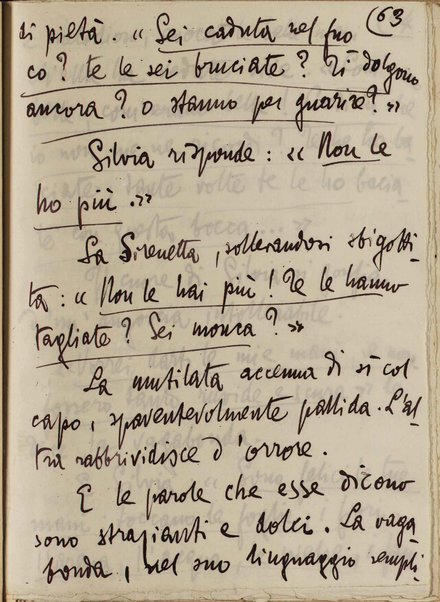 (63
di pietà. « Sei caduta nel fuo
co? te le sei bruciate? Ti dolgono
ancora? o stanno per guarire? »
Silvia risponde: « Non le
ho più. »
La Sirenetta, sollevandosi sbigotti-
ta: « Non le hai più? Te le hanno
tagliate? Sei monca? »
La mutilata accenna di sì col
capo, spaventevolmente pallida. L'al-
tra rabbrividisce d'orrore.
E le parole che esse dicono
sono strazianti e dolci. La vaga
bonda, nel suo linguaggio sempli-